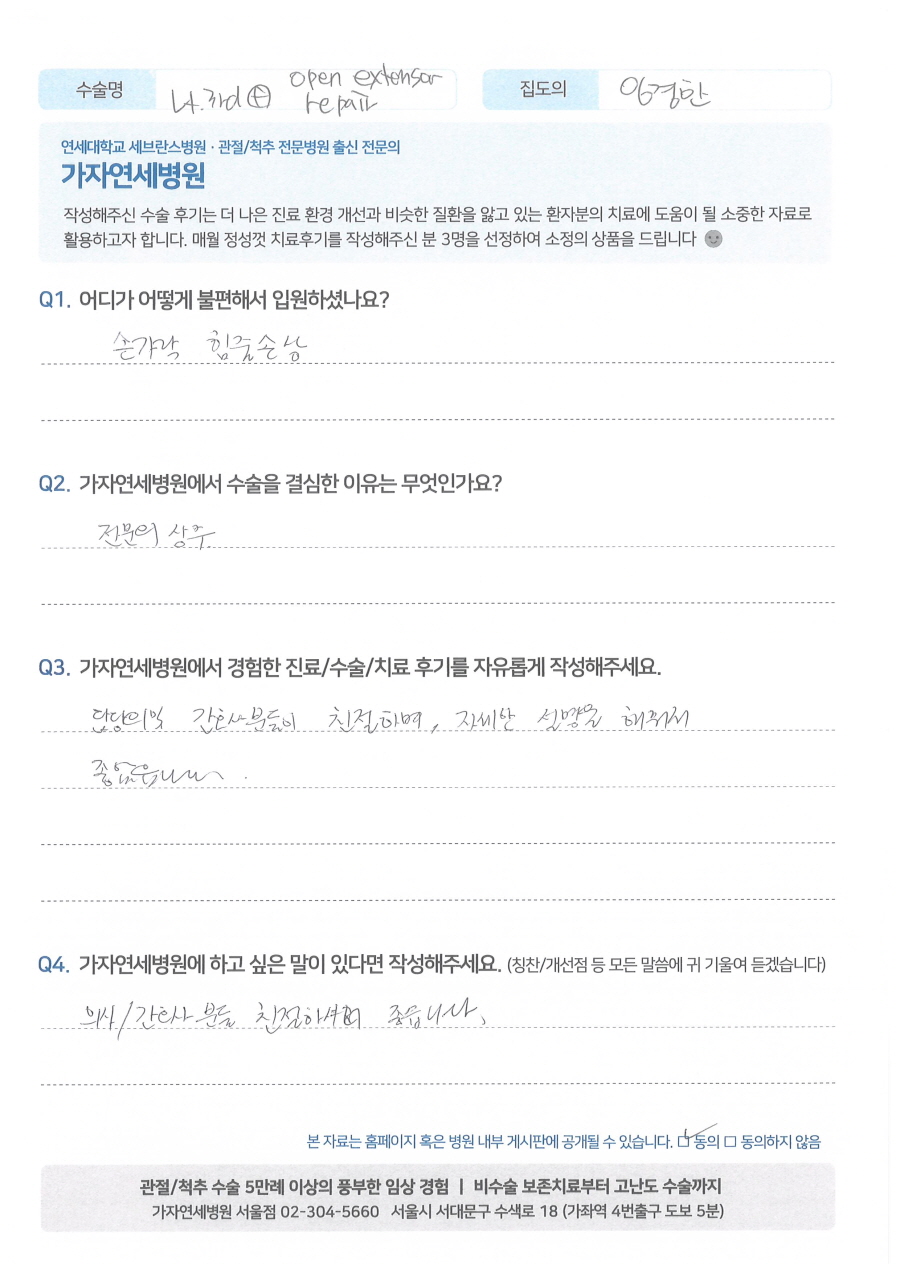 수술명 Lt. 3rd open extensor repair
집도의
연세대학교 세브란스병원 · 관절/척추 전문병원 출신 전문의
가자연세병원
작성해주신 수술 후기는 더 나은 진료 환경 개선과 비슷한 질환을 앓고 있는 환자분의 치료에 도움이 될 소중한 자료로
활용하고자 합니다. 매월 정성껏 치료후기를 작성해주신 분 3명을 선정하여 소정의 상품을 드립니다
Q1. 어디가 어떻게 불편해서 입원하셨나요?
손가락 힘줄손상
Q2. 가자연세병원에서 수술을 결심한 이유는 무엇인가요?
전문의 상주
Q3. 가자연세병원에서 경험한 진료/수술/치료 후기를 자유롭게 작성해주세요.
담당의및 간호사분들이 친절하며, 자세한 설명을 해줘서
좋았습니다.
Q4. 가자연세병원에 하고 싶은 말이 있다면 작성해주세요. (칭찬/개선점 등 모든 말씀에 귀 기울여 듣겠습니다)
의사/간호사 분들 친절하셔서 좋습니다.
본 자료는 홈페이지 혹은 병원 내부 게시판에 공개될 수 있습니다. 동의 □ 동의하지 않음
관절/척추 수술 5만례 이상의 풍부한 임상 경험 | 비수술 보존치료부터 고난도 수술까지
가자연세병원 서울점 02-304-5660 서울시 서대문구 수색로 18 (가좌역 4번출구 도보 5분)